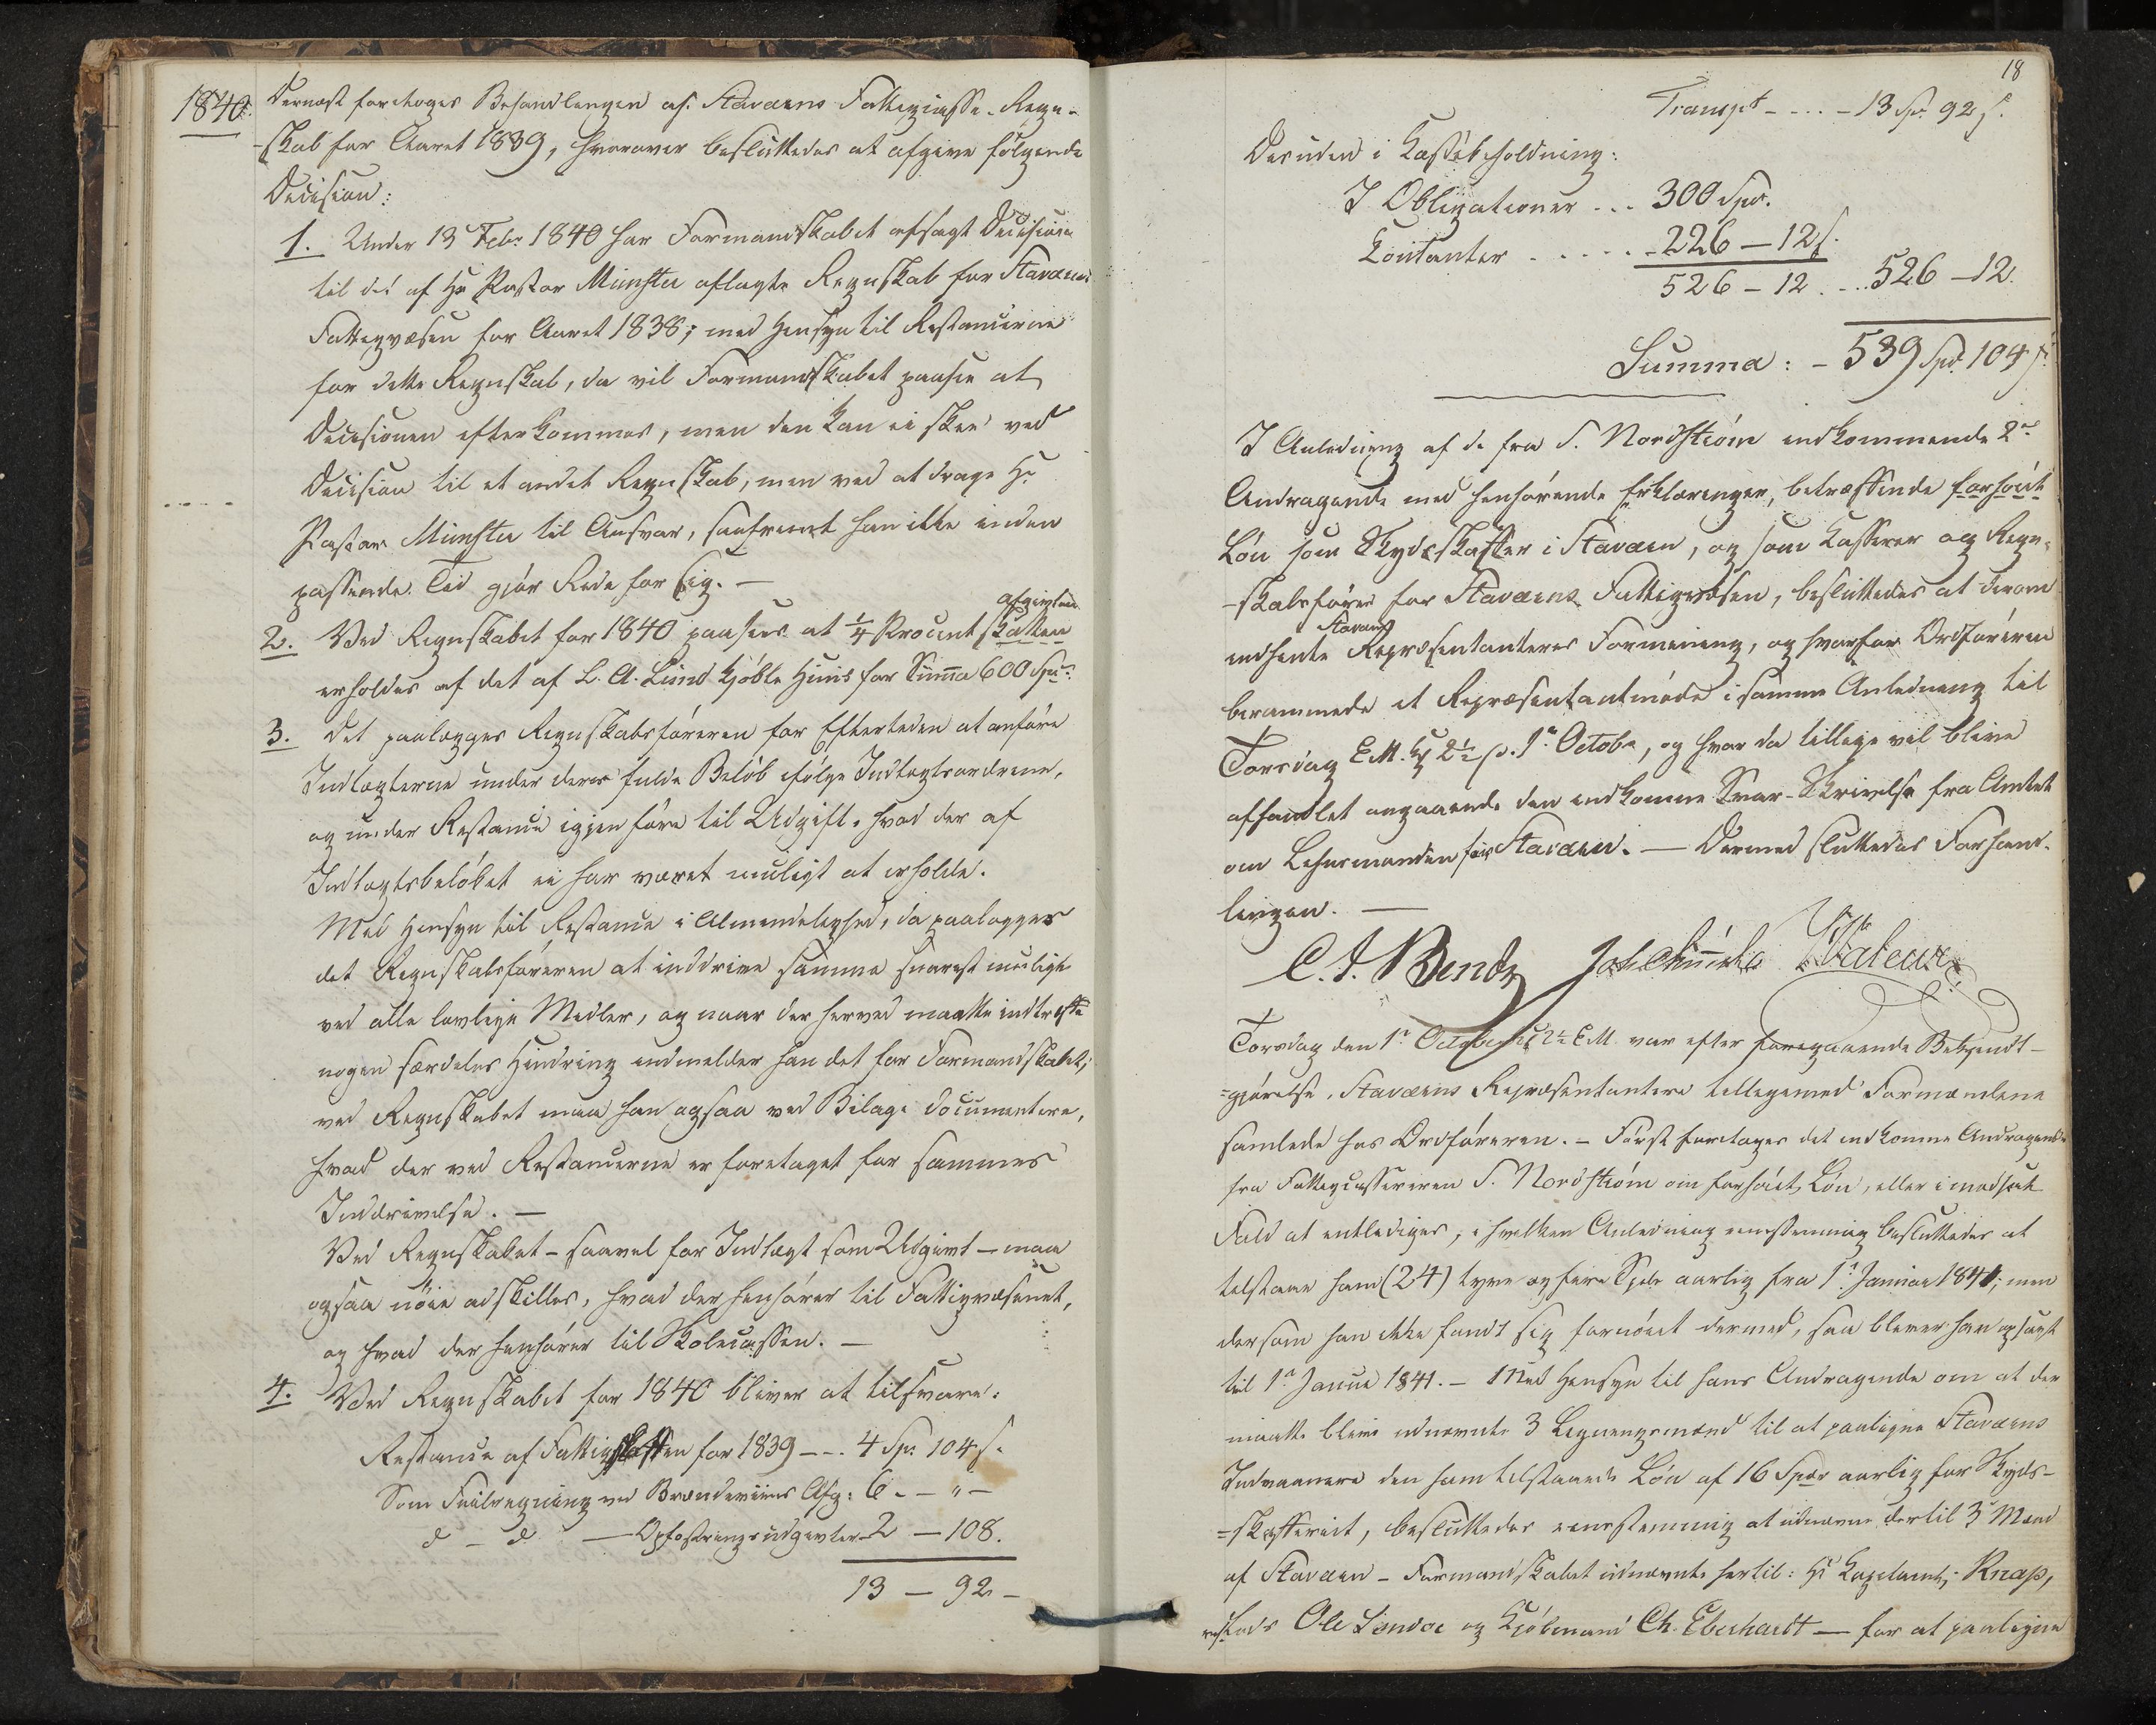 1840.
Dernæst foretoges Behandlingen af Staværns Fattigcasse-Regn-
-skab for Aaret 1839, hvorover besluttedes at afgive følgende
Decision:
1. Under 13 Febr 1840 har Formandskabet afsagt Decision
til det af Hr Pastor Münster aflagte Regnskab for Staværns
Fattigvæsen for Aaret 1838; med Hensyn til Restancerne
for dette Regnskab, da vil Formandskabet paasee at
Decisionen efterkommes, men den kan ei skee ved
Decision til et andet Regnskab, men ved at drage Hr
Pastor Münster til Ansvar, saafremt han ikke inden
passende Tid gjør Rede for sig. —
afgivten
2. Ved Regnskabet for 1840 paasees at ¼ Procent skatten
erholdes af det af L. A. Lund kjøbte Huus for Summa 600 Spd.
3. Det paalægges Regnskabsføreren for Eftertiden at anføre
Indtægterne under deres fulde Beløb ifølge Indtægtsordrene,
og under Restance igjen føre til Udgift, hvad der af
Indtægtsbeløbet ei har været muligt at erholde.
Med Hensyn til Restance i Almindelighed, da paalægges
det Regnskabsføreren at inddrive samme snarest muligt
ved alle lovlige Midler, og naar der herved maatte indtræffe
nogen særdeles Hindring indmelder han det for Formandskabet;
ved Regnskabet maa han ogsaa ved Bilage documentere,
hvad der ved Restancerne er foretaget for sammes
Inddrivelse. —
Ved Regnskabet – saavel for Indtægt som Udgivt – maa
ogsaa nøie adskilles, hvad der henhører til Fattigvæsenet,
og hvad der henhører til Skolecassen. —
4. Ved Regnskabet for 1840 bliver at tilsvare:
Restance af Fattigskatten for 1839 --- 4 Sp. 104 s.
Som Feilregning ved Brændeviins Afg: 6 - — " —
d – d — Opfostringsudgivter - 2 — 108.
13 — 92 –
18
Transpt - - . . - 13 Sp. 92 s.
Desuden i Kassebeholdning:
I Obligationer . . . 300 Spd.
Contanter . . . . . 226 — 12 s.
526 – 12 . . . 526 – 12.
Summa: – 539 Spd. 104 s.
I Anledning af de fra S. Nordstrøm indkommende 2de
Andragende med henhørende Erklæringer, betræffende forhøiet
Løn som Skydsskaffer i Staværn, og som Kasserer og Regn-
-skabsfører for Staværns Fattigvæsen, besluttedes at derom
Staværns
indhente Repræsentanteres Formening, og hvorfor Ordføreren
berammede et Repræsentantmøde i samme Anledning til
Torsdag E.M. Kl 2½ p. 1ste Octobr, og hvor da tillige vil blive
afhandlet angaaende den indkomne Svar-Skrivelse fra Amtet
om Lehnsmanden for Staværn. — Dermed sluttedes Forhand-
lingen. —
C. F. Bendz
Torsdag den 1ste October Kl 2½ E.M. var efter foregaaende Bekjendt-
=gjørelse, Staværns Repræsentantere tilligemed Formændene
samlede hos Ordføreren. – Først foretages det indkomne Andragende
fra Fattigcassereren S. Nordstrøm om forhøiet Løn, eller i modsat
Fald at entlediges, i hvilken Anledning eenstemmig besluttedes at
tilstaae ham (24) tyve og fire Spdr aarlig fra 1ste Januar 1841; men
dersom han ikke fandt sig fornøiet dermed, saa bliver han opsagt
til 1ste Januar 1841. – Med Hensyn til hans Andragende om at der
maatte blive udnævnte 3 Ligningsmænd til at paaligne Staværns
Indvaanere den ham tilstaaede Løn af 16 Spdr aarlig for Skyds-
=skafferiet, besluttedes eenstemmig at udnævne dertil 3 Mænd
af Staværn – Formandskabet udnævnte hertil: Hr Kapelains Knap,
Ole Sundøe og Kjøbmand Ch. Eberhardt — for at paaligne